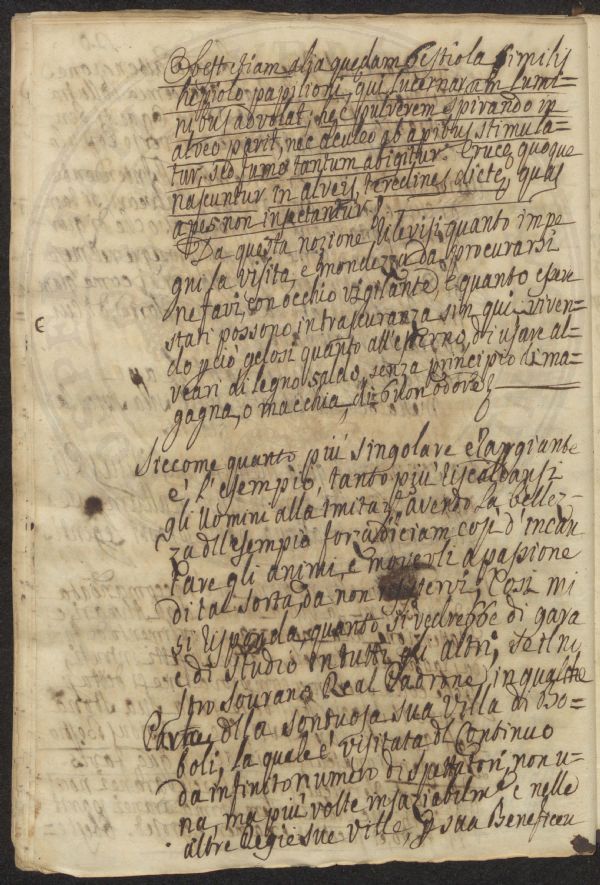 Obest etiam alia quedam bestiola similis
hepiolo papilioni, qui lucernarum lumi=
nibus advolat, hec pulverem spirando in
alveo parit, nec aculeo ab apibus stimula=
tur, sed fumo tantum abigitur. Eruce quoque
nascuntur in alveis, teredines dicte, quas
apes non insectantur.
Da questa nozione rilevisi quanto impe
gni la visita, e mondezza da procurarsi
ne favi, con occhio vigilante, e quanto essere
stati possono in trascuranza sin qui, viven=
do p ciò gelosi quanto all'esterno, di usare al=
veari di legno saldo, senza principio di ma=
gagna, o macchia, di buon odore.
Siccome quanto più singolare e rangiante
è l'esempio, tanto più riscaldansi
gli Uomini alla imitaz.e avendo la bellez=
za dll esempio forza diciam così d'incan
tare gli animi, e moverli a passione
di tal sorta, da non Così mi
si risponda, quanto si vedrebbe di gara
e di studio in tutti gli altri, se il nr̃
stro sourano Real Padrone, in qualche
Parte, dlla sontuosa sua Villa di Bo=
boli, la quale è visitata di continuo
da infinito numero di spettatori, non u=
na, ma più volte insaziabilm.e e nelle
altre Regie sue Ville, p sua Beneficen